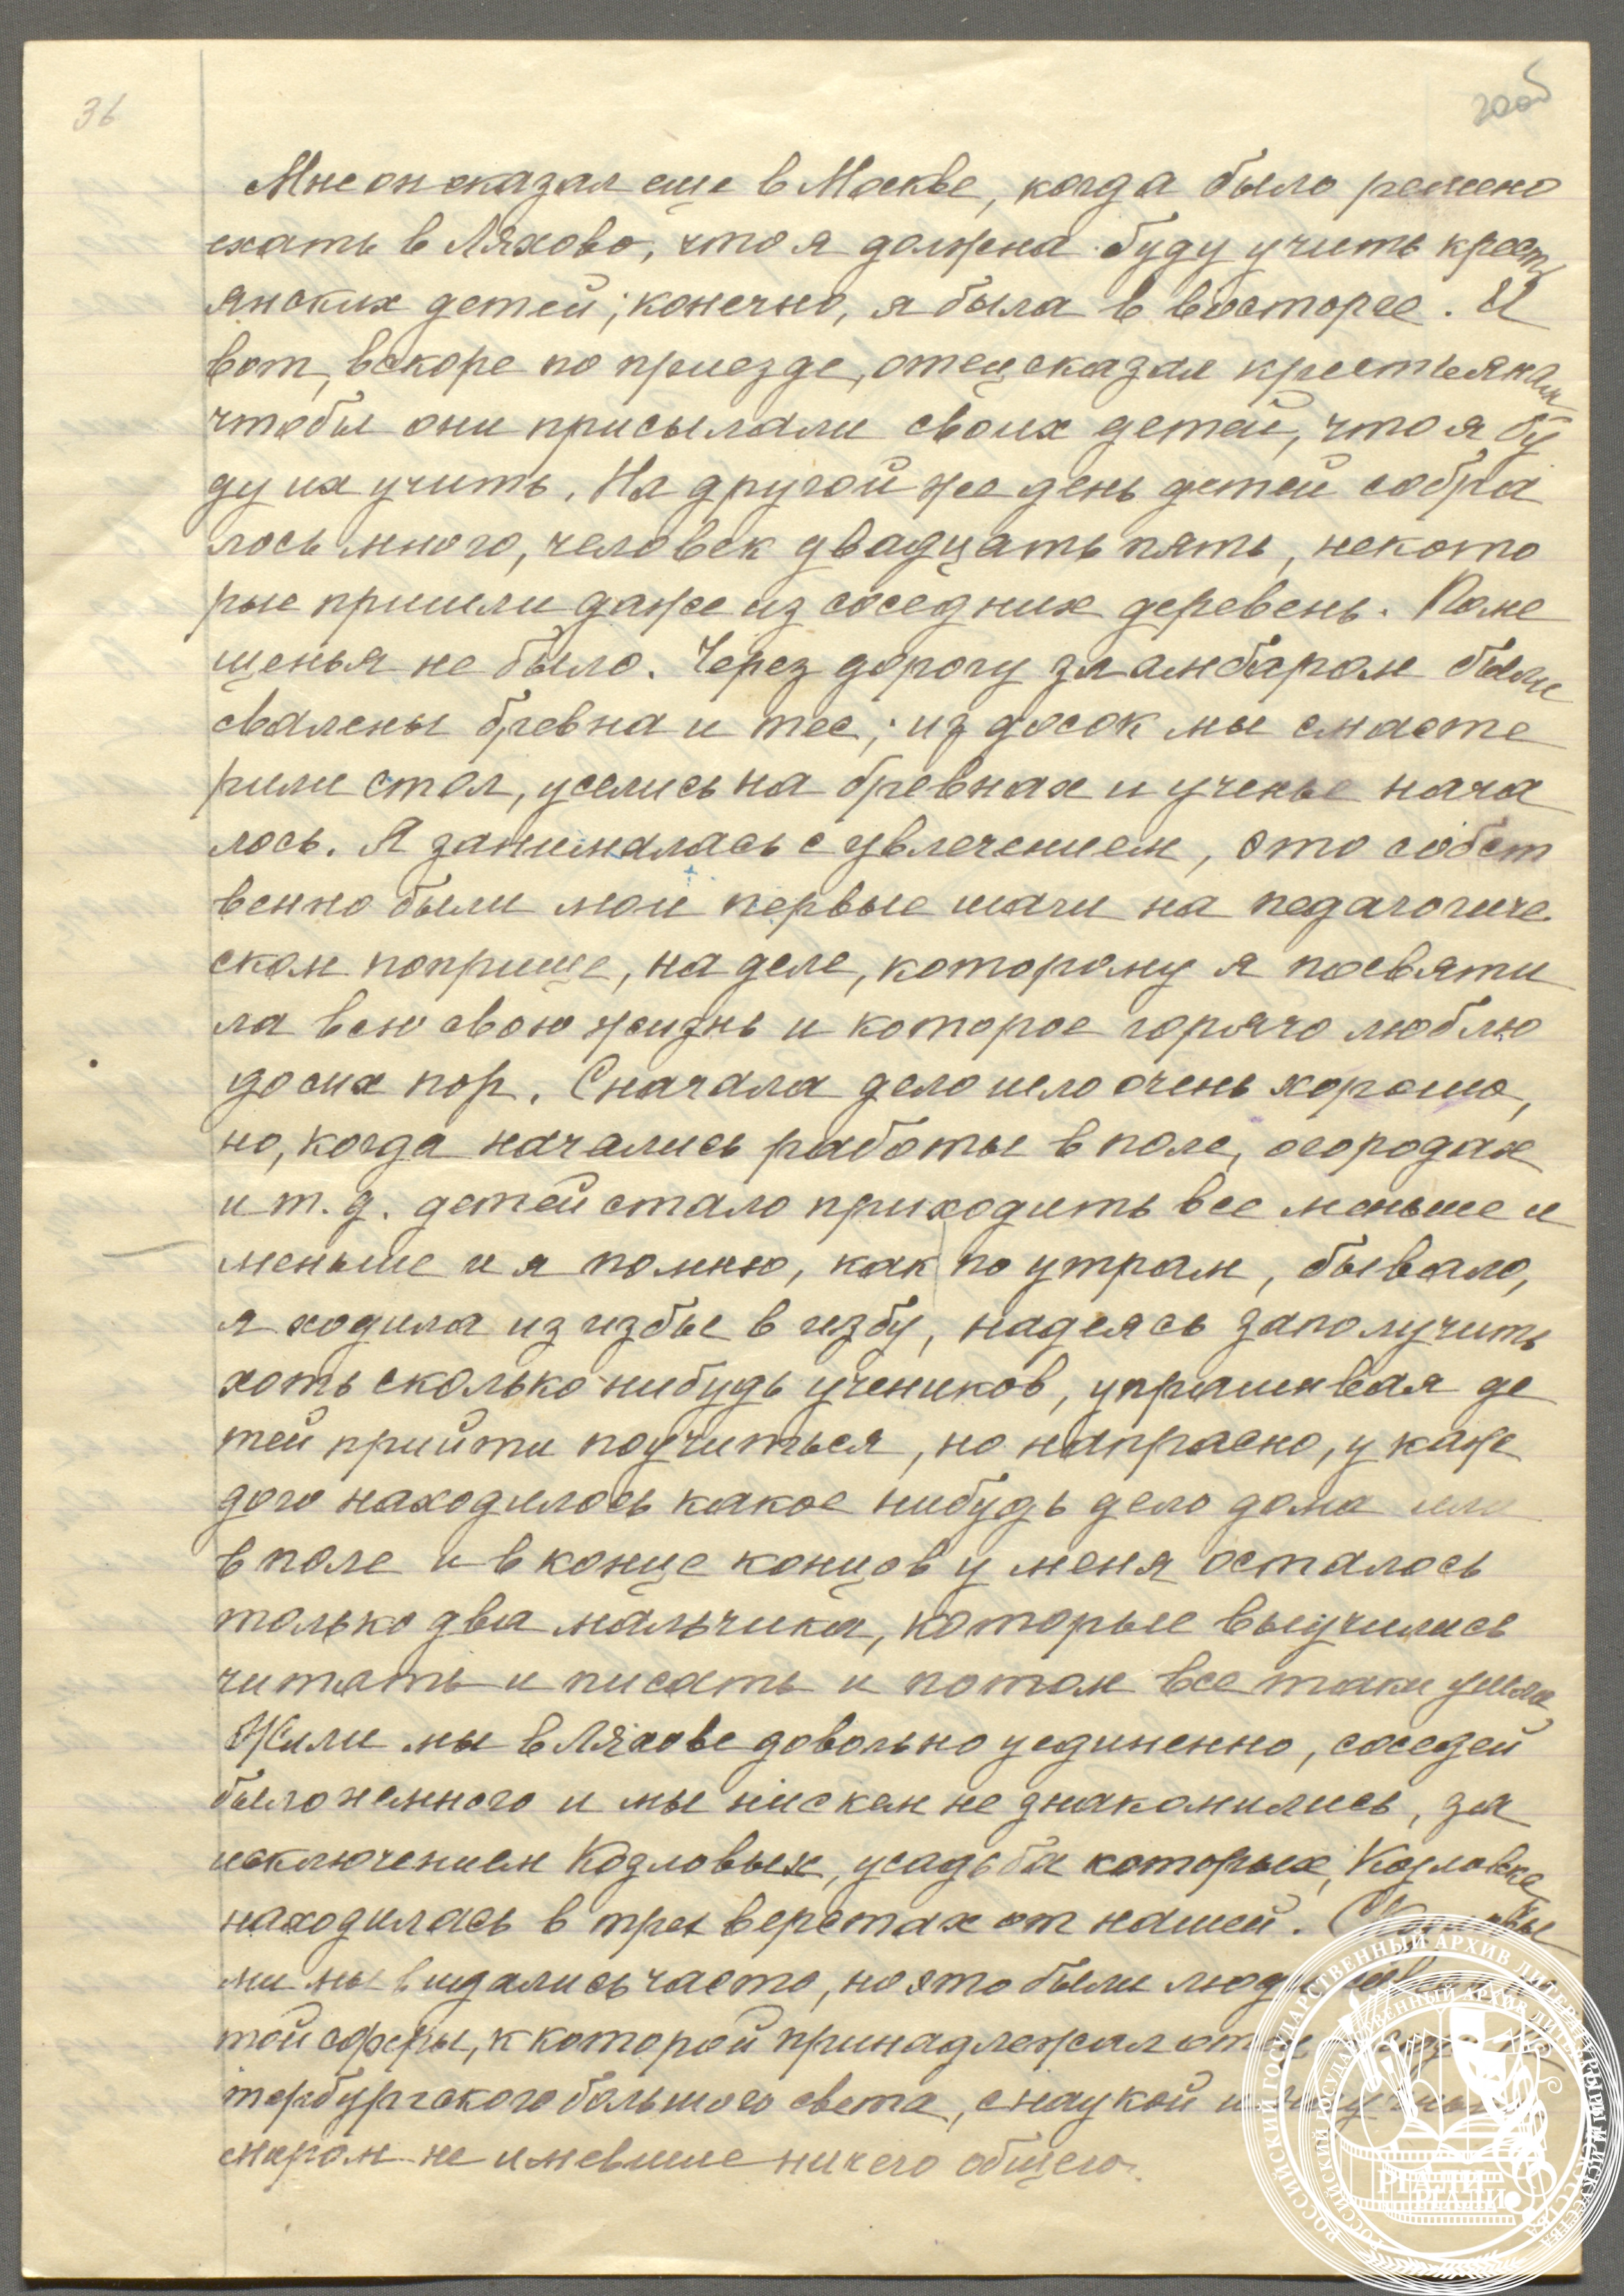 36
20об
Мне он сказал еще в Москве, когда было решено
ехать в Ляхово, что я должна буду учить кресть
янских детей; конечно, я была в восторге. И
вот, вскоре по приезде, отец сказал крестьянам
чтобы они присылали своих детей, что я бу
ду их учить. На другой же день детей собра
лось много, человек двадцать пять, некото
рые пришли даже из соседних деревень. Поме
щенья не было. Через дорогу за амбаром были
свалены бревна и тес; из досок мы смасте
рили стол, уселись на бревнах и ученье нача
лось. Я занималась с увлечением, это собст
венно были мои первые шаги на педагогиче
ском поприще, на деле, которому я посвяти
ла всю свою жизнь и которое горячо люблю
до сих пор. Сначала дело шло очень хорошо,
но, когда начались работы в поле, огородах
и т. д. детей стало приходить все меньше и
меньше и я помню, как по утрам, бывало,
я ходила из избы в избу, надеясь заполучить
хоть сколько нибудь учеников, упрашивая де
тей прийти поучиться, но напрасно, у каж
дого находилось какое нибудь дело дома или
в поле и в конце концов у меня осталось
только два мальчика, которые выучились
читать и писать и потом все таки ушли.
Жили мы в Ляхове довольно уединенно, соседей
было немного и мы ни с кем не знакомились, за
исключением Козловых, усадьба которых, Козловка
находилась в трех верстах от нашей. С Козловы
ми мы видались часто, но это были люди
той сферы, к которой принадлежал отец
тербургского большого света, с наукой и научным
миром не имевшие ничего общего.
РОССИЙСКИЙ ГОСУДАРСТВЕННЫЙ АРХИВ ЛИТЕРАТУРЫ И ИСКУССТВА
РОССИЙСКИЙ ГОСУДАРСТВЕННЫЙ АРХИВ ЛИТЕРАТУРЫ И ИСКУССТВА
РГАЛИ
РГАЛИ